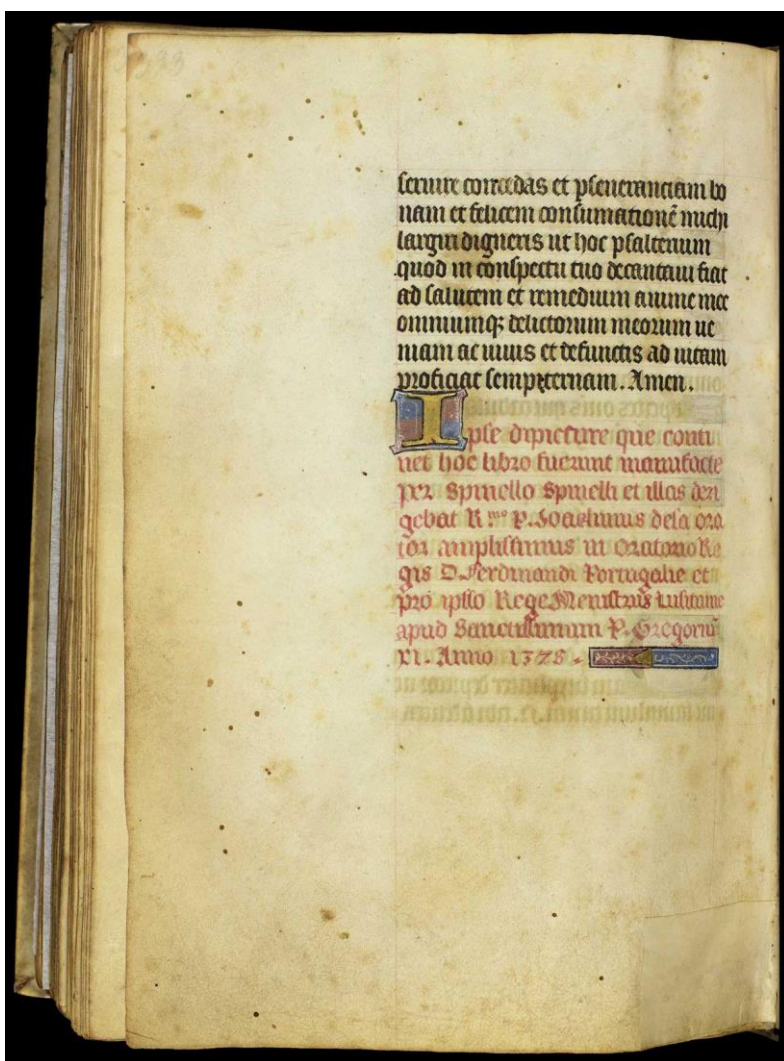 seruire concedas et pseueranciam bo
nam et felicem consumationē michi
largiri digneris ut hoc psalterium
quod in conspectu tuo decantaui fiat
ad salutem et remedium anime mee
omniumqꝫ delictorum meorum ue
niam ac uiuis et defunctis ad uitam
proficiat sempiternam. Amen.
Ipse dipicture que conti
net hoc libro fuerunt manufacte
per Spinello Spinelli et illas deri
gebat R.mo P. Joachinus dela ora
tor amplissimus in Oratorio Re
gis D. Ferdinandi Portugalie et
pro ipso Rege Menistrus Lusitanie
apud Sanctissimum P. Gregoriū
XI. Anno 1378.